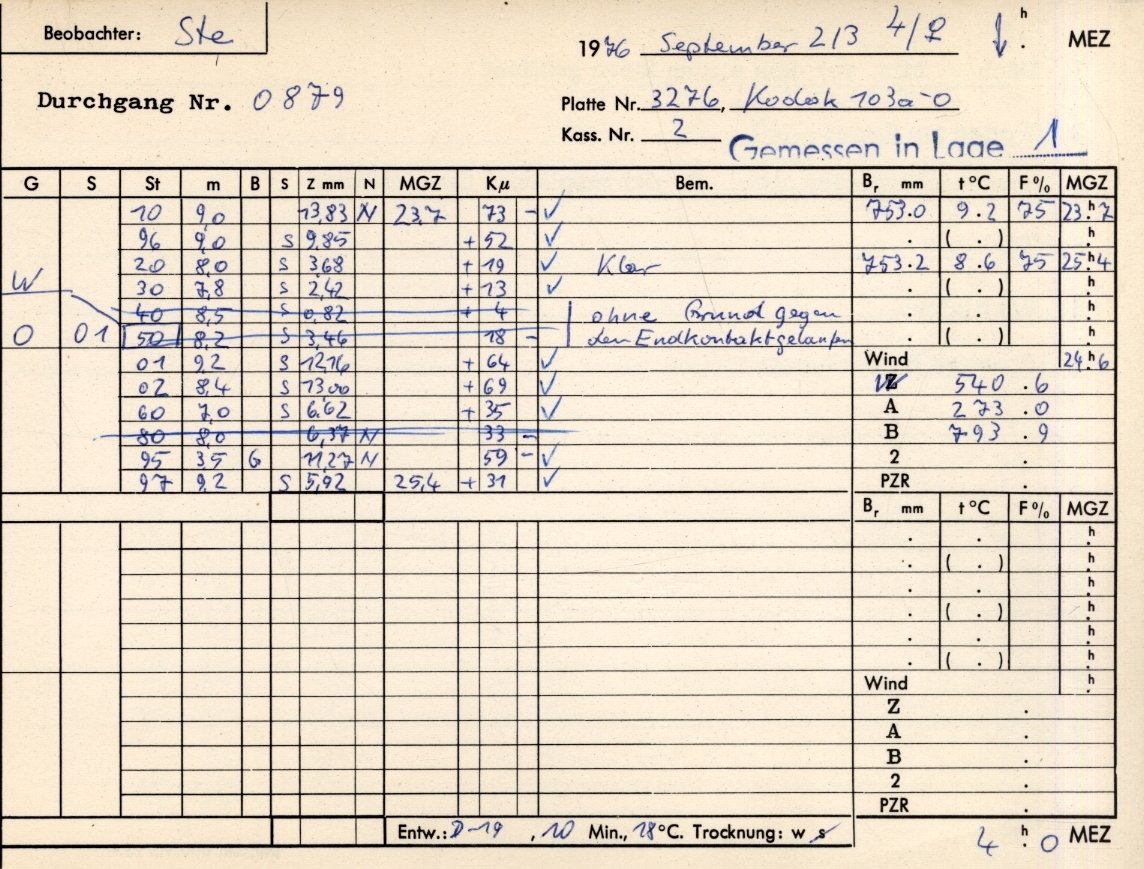 Beobachter: Ste
1976 September 2/3 4/♀ ↓ h . MEZ
Durchgang Nr. 0879
Platte Nr. 3276, Kodak 103a-O
Kass. Nr. 2
Gemessen in Lage 1
G S St m B S Z mm N MGZ Kµ Bem. Br mm t °C F% MGZ
10 9,0 13,83 N 23,7 73 - ✓ 753.0 9.2 75 23h.7
96 9,0 S 9,85 + 52 ✓ . ( . ) h.
20 8,0 S 3,68 + 19 ✓ Klar 753.2 8.6 75 25h.4
W 30 7,8 S 2,42 + 13 ✓ . ( . ) h.
40 8,5 S 0,82 + 4 ohne Grund gegen . . h.
O 01 50 8,2 S 3,46 18 - den Endkontakt gelaufen . ( . ) h.
01 9,2 S 12,16 + 64 ✓ Wind 24h.6
02 8,4 S 13,00 + 69 ✓ Z 540.6
60 7,0 S 6,62 + 35 ✓ A 273.0
80 8,0 6,37 N 33 - B 793.9
95 3,5 G 11,27 N 59 - ✓ 2 .
97 9,2 S 5,92 25,4 + 31 ✓ PZR .
Br mm t °C F% MGZ
. . h.
. ( . ) h.
. . h.
. ( . ) h.
. . h.
. ( . ) h.
Wind h.
Z .
A .
B .
2 .
PZR .
Entw.: D-19, 10 Min., 18°C. Trocknung: w s
4 h. 0 MEZ